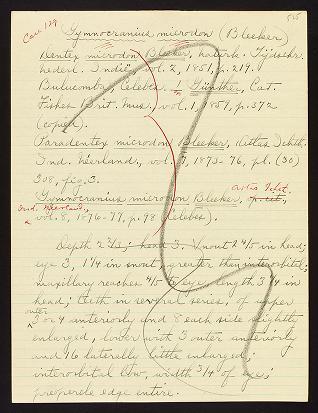 Gymnocranius microdon (Bleeker)
Dentex microdon Bleeker, Natuurk. Tijdschr.
Nederl. Indië, vol. 2, 1851, p. 219.
Bulucomba, Celebes. Günther, Cat.
Fishes Brit. Mus., vol. 1, 1859, p. 372
(copied).
Paradentex microdon Bleeker, Atlas Ichth.
Ind. Néerland., vol. 7, 1873-76, pl. (30)
308, fig. 3.
Atlas Ichth.
Gymnocranius microdon Bleeker, op. cit.,
Ind. Néerland.,
vol. 8, 1876-77, p. 98 (Celebes).
Depth 2 2/3; head 3, Snout 2 4/5 in head;
eye 3, 1 1/4 in snout, greater than interorbital;
maxillary reaches 4/5 to eye, length 3 1/4 in
head; teeth in several series, of upper
outer
3 or 4 anteriorly and 8 each side slightly
enlarged, lower with 3 outer anteriorly
and 16 laterally little enlarged;
interorbital low, width 3/4 of eye;
preopercle edge entire.